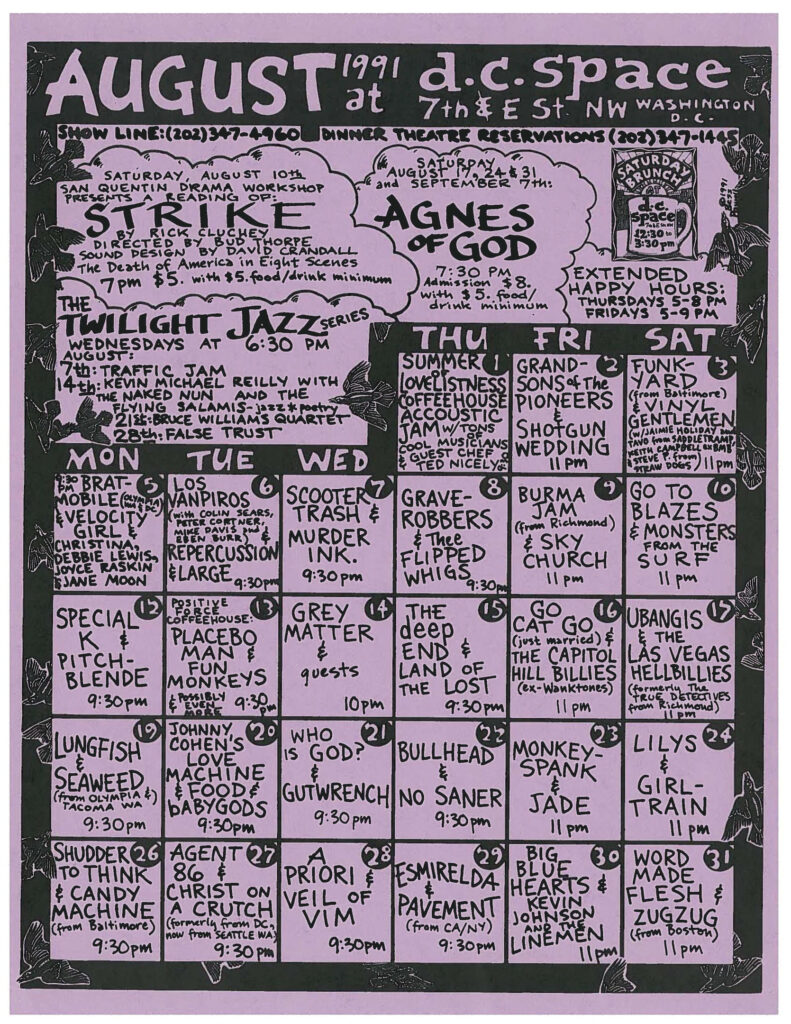 AUGUST 1991 at d.c. space
7th & E St. NW WASHINGTON D.C.
SHOW LINE: (202) 347-4960 DINNER THEATRE RESERVATIONS (202) 347-1445
SATURDAY, AUGUST 10th
SAN QUENTIN DRAMA WORKSHOP
PRESENTS A READING OF:
STRIKE
BY RICK CLUCHEY
DIRECTED BY BUD THORPE
SOUND DESIGN BY DAVID CRANDALL
The Death of America in Eight Scenes
7pm $5. with $5. food/drink minimum
SATURDAY
AUGUST 17, 24 & 31
and SEPTEMBER 7th:
AGNES
OF GOD
7:30 PM
Admission $8.
with $5. food/
drink minimum
SATURDAY
BRUNCH
d.c.
space
7th & E St. NW
12:30 to
3:30 pm
©1991
EXTENDED
HAPPY HOURS:
THURSDAYS 5-8 PM
FRIDAYS 5-9 PM
THE
TWILIGHT JAZZ SERIES
WEDNESDAYS AT 6:30 PM
AUGUST:
7th: TRAFFIC JAM
14th: KEVIN MICHAEL REILLY WITH
THE NAKED NUN AND THE
FLYING SALAMIS-jazz * poetry
21st: BRUCE WILLIAMS QUARTET
28th: FALSE TRUST
THU FRI SAT
SUMMER 1
of
LOVELISTNESS
COFFEEHOUSE
ACCOUSTIC
JAM W/TONS
OF
COOL MUSICIANS
& GUEST CHEF
TED NICELY
GRAND- 2
SONS of The
PIONEERS
&
SHOTGUN
WEDDING
11 pm
FUNK- 3
YARD
(from Baltimore)
& VINYL
GENTLEMEN
(w/JAIMIE HOLIDAY and
TAVO from SADDLETRAMP,
KEITH CAMPBELL ex BMB
& STEVE P. from
STRAW DOGS) 11pm
MON TUE WED
9:30 pm BRAT- 5
MOBILE (OLYMPIA WA & DC)
& VELOCITY
GIRL &
CHRISTINA,
DEBBIE LEWIS,
JOYCE RASKIN
& JANE MOON
LOS 6
VANPIROS
(with COLIN SEARS,
PETER CORTNER,
MIKE DAVIS and
EBEN BURR) &
REPERCUSSION
& LARGE 9:30pm
7
SCOOTER
TRASH &
MURDER
INK.
9:30pm
8
GRAVE-
ROBBERS
& Thee
FLIPPED
WHIGS
9:30pm
BURMA 9
JAM
(from Richmond)
& SKY
CHURCH
11 pm
GO TO 10
BLAZES
& MONSTERS
FROM THE
SURF
11 pm
12
SPECIAL
K &
PITCH-
BLENDE
9:30pm
POSITIVE 13
FORCE
COFFEEHOUSE:
PLACEBO
MAN &
FUN
MONKEYS
& POSSIBLY
EVEN
MORE 9:30 pm
GREY 14
MATTER
&
guests
10pm
THE 15
deep
END &
LAND OF
THE LOST
9:30pm
GO 16
CAT GO
(just married) &
THE CAPITOL
HILL BILLIES
(ex-Wanktones)
11 pm
UBANGIS 17
& THE
LAS VEGAS
HELLBILLIES
(formerly The
TRUE DETECTIVES
from Richmond)
11 pm
19
LUNGFISH
&
SEAWEED
(from OLYMPIA &)
TACOMA WA
9:30pm
JOHNNY 20
COHEN'S
LOVE
MACHINE
& FOOD &
bABYGODS
9:30pm
WHO 21
IS GOD?
&
GUTWRENCH
9:30pm
22
BULLHEAD
&
NO SANER
9:30pm
23
MONKEY-
SPANK
&
JADE
11 pm
LILYS 24
&
GIRL-
TRAIN
11 pm
SHUDDER 26
TO THINK
& CANDY
MACHINE
(from Baltimore)
9:30pm
AGENT 27
86 &
CHRIST ON
A CRUTCH
(formerly from DC,
now from SEATTLE WA)
9:30pm
A 28
PRIORI &
VEIL OF
VIM
9:30pm
29
ESMIRELDA
&
PAVEMENT
(from CA/NY)
9:30pm
BIG 30
BLUE
HEARTS &
KEVIN
JOHNSON
AND THE
LINEMEN
11pm
WORD 31
MADE
FLESH &
ZUGZUG
(from Boston)
11 pm